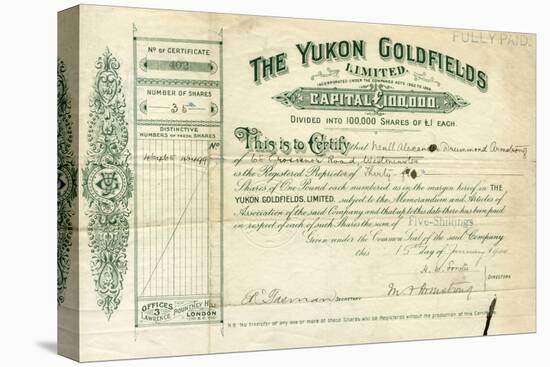 FULLY PAID.
Nº OF CERTIFICATE
402
NUMBER OF SHARES
35
DISTINCTIVE
NUMBERS OF THESE SHARES
Nº
THE YUKON GOLDFIELDS
LIMITED.
INCORPORATED UNDER THE COMPANIES ACTS 1862 TO 1898.
CAPITAL £100,000,
DIVIDED INTO 100,000 SHARES OF £1 EACH.
This is to Certify that Drummond Armstrong
of Grosvenor Road, Westminster
is the Registered Proprietor of Thirty
Shares of One Pound each numbered as in the margin hereof in THE
YUKON GOLDFIELDS, LIMITED, subject to the Memorandum and Articles of
Association of the said Company and that up to this date there has been paid
in respect of each of such Shares the sum of Five-Shillings
Given under the Common Seal of the said Company
this 15th day of 1900
DIRECTORS
SECRETARY
M Armstrong
OFFICES
3
LAWRENCE POUNTNEY HILL
LONDON
N.B. No transfer of any one or more of these Shares will be Registered without the production of this Certificate.